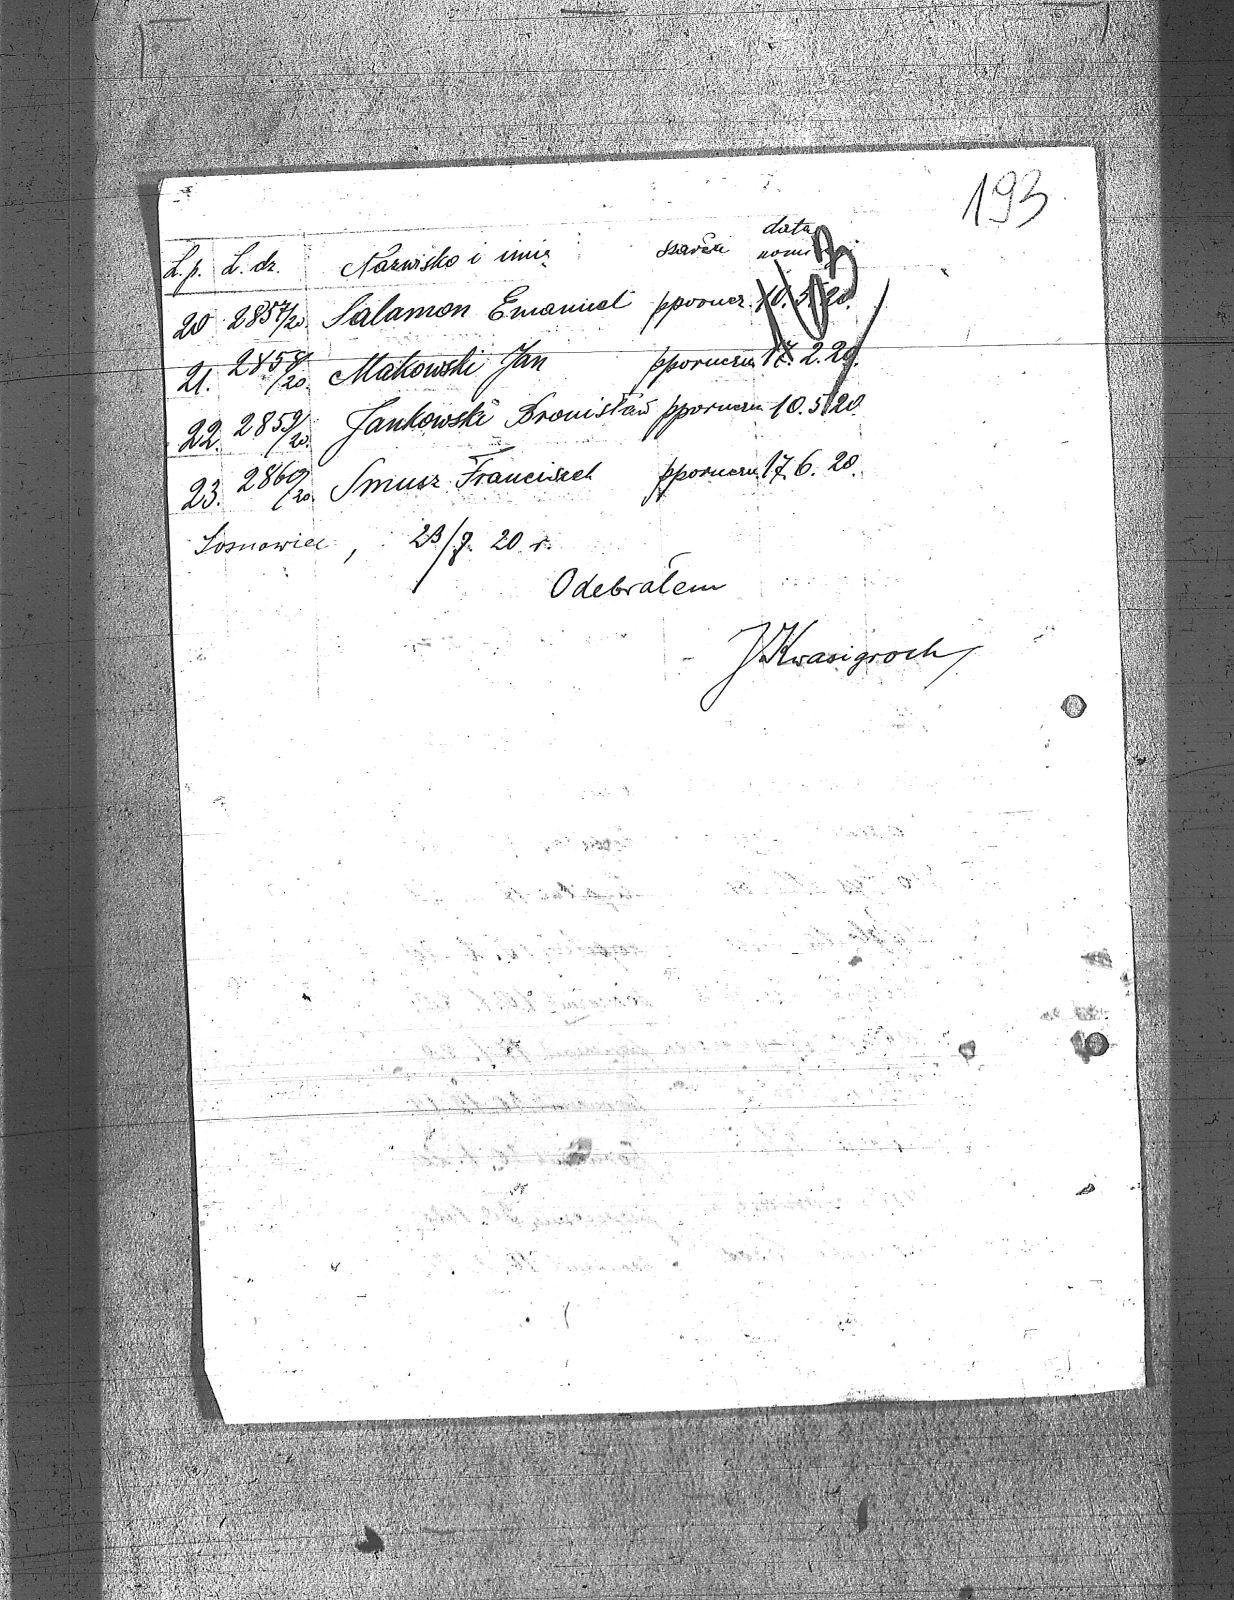 193
L.p. L. dz. Nazwisko i imię szarża data nomi
20 2857/20. Salamon Emanuel pporucz. 10.5.20.
21. 2858/20. Makowski Jan pporuczn 17.2.20.
22. 2859/20. Jankowski Bronisław pporuczn 10.5.20.
23. 2860/20. Smusz Franciszek pporuczn. 17.6.20.
Sosnowiec, 23/9. 20 r.
Odebrałem
J Kwasigroch